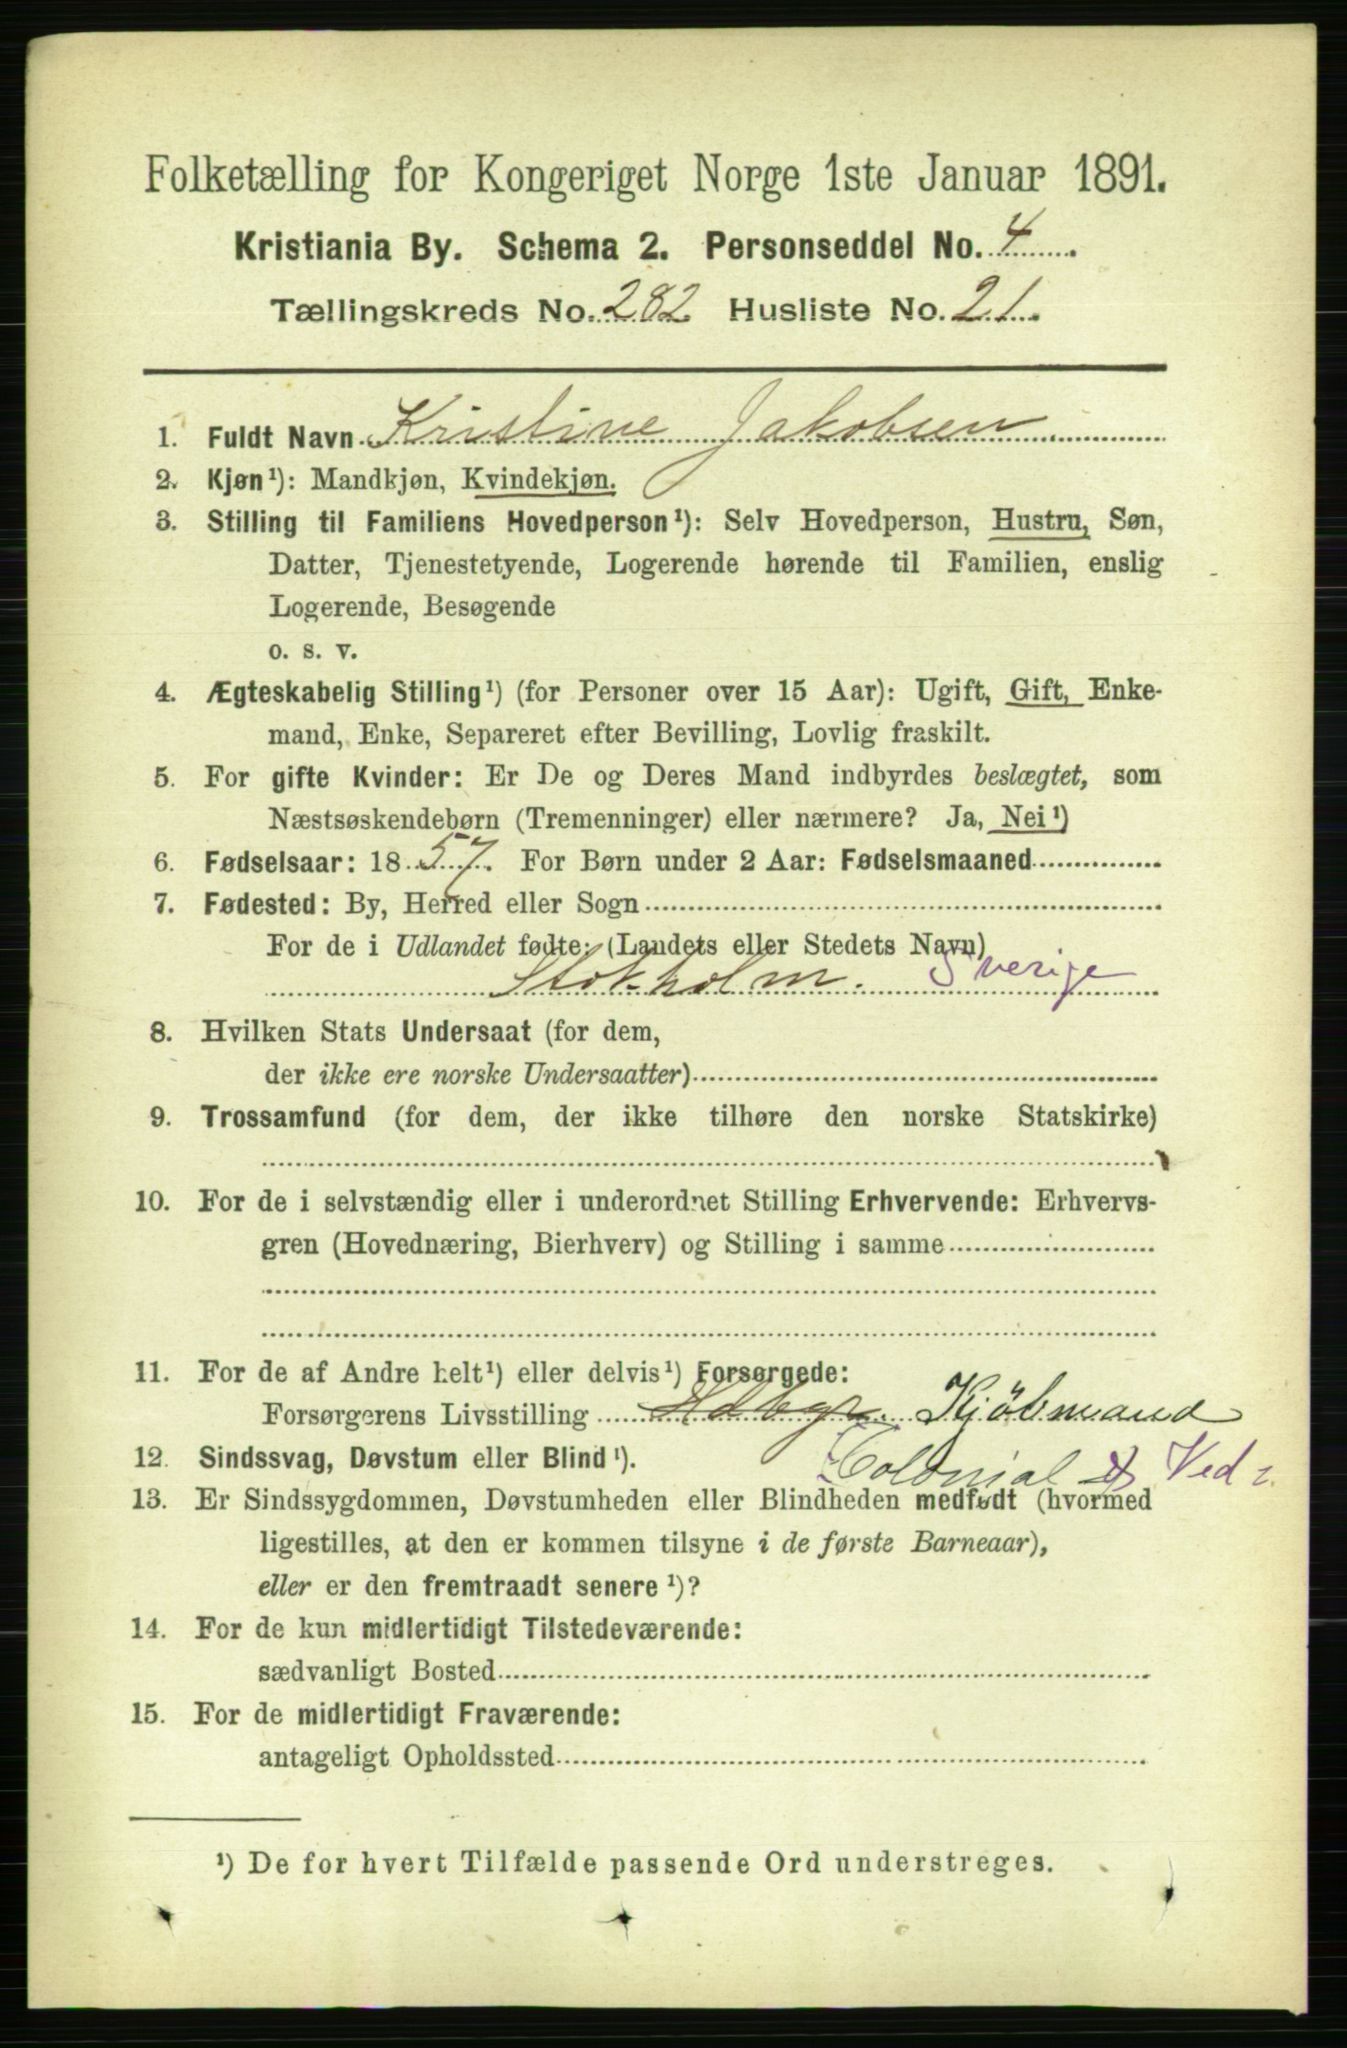 Folketælling for Kongeriget Norge 1ste Januar 1891.
Kristiania By. Schema 2. Personseddel No. 4
Tællingskreds No. 282 Husliste No. 21
1. Fuldt Navn Kristine Jakobsen
2. Kjøn¹): Mandkjøn, Kvindekjøn.
3. Stilling til Familiens Hovedperson¹): Selv Hovedperson, Hustru, Søn,
Datter, Tjenestetyende, Logerende hørende til Familien, enslig
Logerende, Besøgende
o. s. v.
4. Ægteskabelig Stilling¹) (for Personer over 15 Aar): Ugift, Gift, Enke-
mand, Enke, Separeret efter Bevilling, Lovlig fraskilt.
5. For gifte Kvinder: Er De og Deres Mand indbyrdes beslægtet, som
Næstsøskendebørn (Tremenninger) eller nærmere? Ja, Nei¹)
6. Fødselsaar: 1857. For Børn under 2 Aar: Fødselsmaaned
7. Fødested: By, Herred eller Sogn
For de i Udlandet fødte: (Landets eller Stedets Navn)
Stokholm. Sverige
8. Hvilken Stats Undersaat (for dem,
der ikke ere norske Undersaatter)
9. Trossamfund (for dem, der ikke tilhøre den norske Statskirke)
10. For de i selvstændig eller i underordnet Stilling Erhvervende: Erhvervs-
gren (Hovednæring, Bierhverv) og Stilling i samme
11. For de af Andre helt¹) eller delvis¹) Forsørgede:
Forsørgerens Livsstilling Hdbgr. Kjöbmand
Colonial & Ved
12. Sindssvag, Døvstum eller Blind¹).
13. Er Sindssygdommen, Døvstumheden eller Blindheden medfødt (hvormed
ligestilles, at den er kommen tilsyne i de første Barneaar),
eller er den fremtraadt senere¹)?
14. For de kun midlertidigt Tilstedeværende:
sædvanligt Bosted
15. For de midlertidigt Fraværende:
antageligt Opholdssted
¹) De for hvert Tilfælde passende Ord understreges.